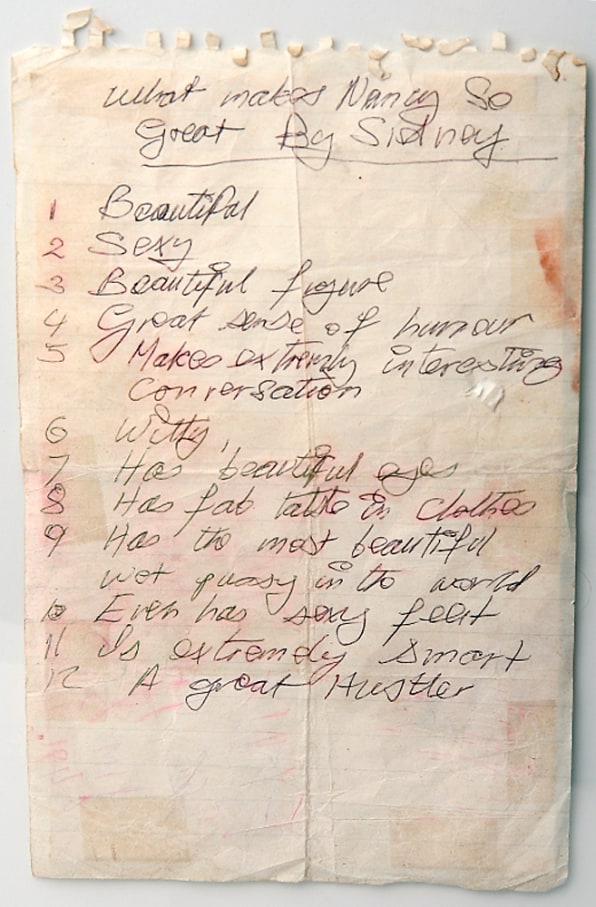 what makes Nancy So
Great By Sidney
1 Beautiful
2 Sexy
3 Beautiful figure
4 Great sense of humour
5 Makes extremly interesting
conversation
6 Witty
7 Has beautiful eyes
8 Has fab taste in clothes
9 Has the most beautiful
wet pussy in the world
10 Even has sexy feet
11 Is extremely smart
12 A great Hustler